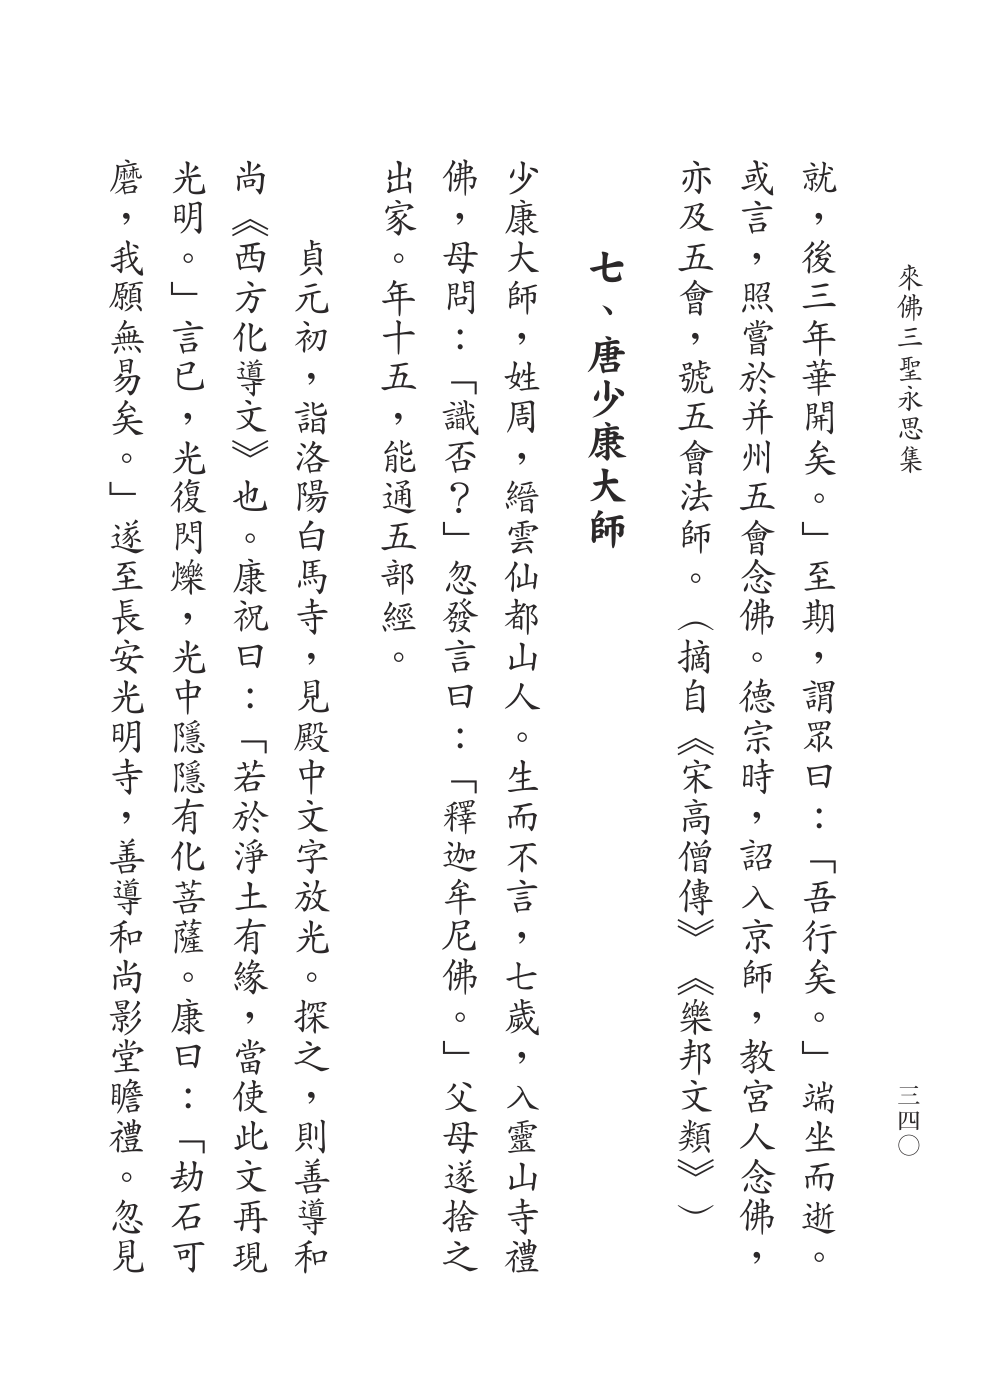 來佛三聖永思集
三四〇
就，後三年華開矣。」至期，謂眾曰：「吾行矣。」端坐而逝。
或言，照嘗於并州五會念佛。德宗時，詔入京師，教宮人念佛，
亦及五會，號五會法師。（摘自《宋高僧傳》《樂邦文類》）
七、唐少康大師
少康大師，姓周，縉雲仙都山人。生而不言，七歲，入靈山寺禮
佛，母問：「識否？」忽發言曰：「釋迦牟尼佛。」父母遂捨之
出家。年十五，能通五部經。
貞元初，詣洛陽白馬寺，見殿中文字放光。探之，則善導和
尚《西方化導文》也。康祝曰：「若於淨土有緣，當使此文再現
光明。」言已，光復閃爍，光中隱隱有化菩薩。康曰：「劫石可
磨，我願無易矣。」遂至長安光明寺，善導和尚影堂瞻禮。忽見